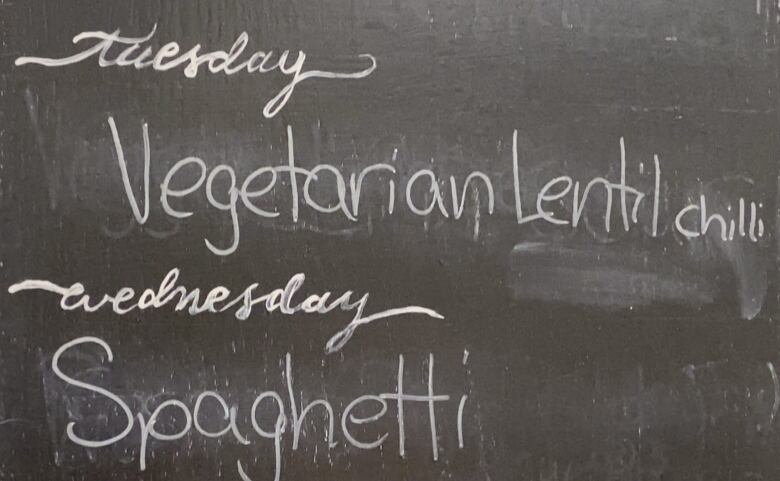 tuesday
Vegetarian Lentil chilli
wednesday
Spaghetti